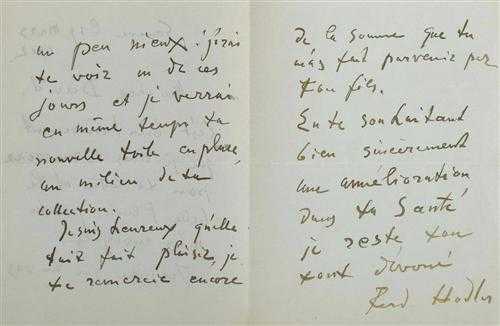 un peu mieux. j'irai
te voir un de ces
jours et je verrai
en même temps ta
nouvelle toile en place,
au milieu de ta
collection.
Je suis heureux qu'elle
t'ait fait plaisir, je
te remercie encore
de la somme que tu
m'as fait parvenir par
ton fils.
En te souhaitant
bien sincèrement
une amélioration
dans ta santé
je reste ton
tout dévoué
Ferd Hodler